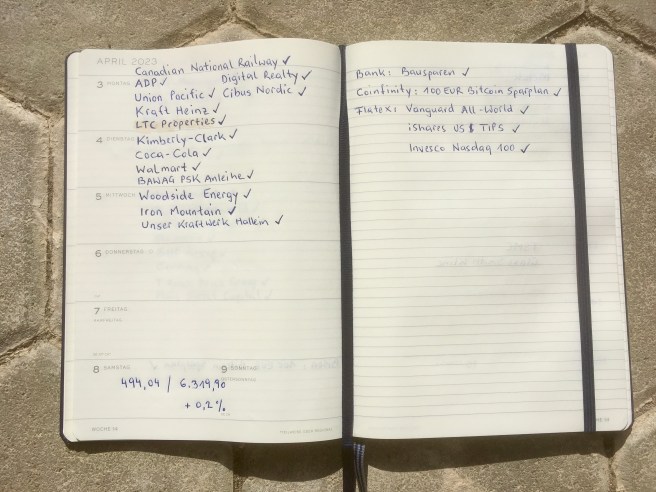 APRIL 2023
Canadian National Railway ✓
3 MONTAG ADP ✓ Digital Realty ✓
Union Pacific ✓ Cibus Nordic ✓
Kraft Heinz ✓
LTC Properties ✓
4 DIENSTAG Kimberly-Clark ✓
Coca-Cola ✓
Walmart ✓
BAWAG PSK Anleihe ✓
5 MITTWOCH Woodside Energy ✓
Iron Mountain ✓
Unser Kraftwerk Hallein ✓
6 DONNERSTAG
7 FREITAG
8 SAMSTAG 9 SONNTAG
494,04 / 6.319,90
+ 0,2%
WOCHE 14
Bank: Bausparen ✓
Coinfinity: 100 EUR Bitcoin Sparplan ✓
Flatex: Vanguard All-World ✓
iShares US $ TIPS ✓
Invesco Nasdaq 100 ✓